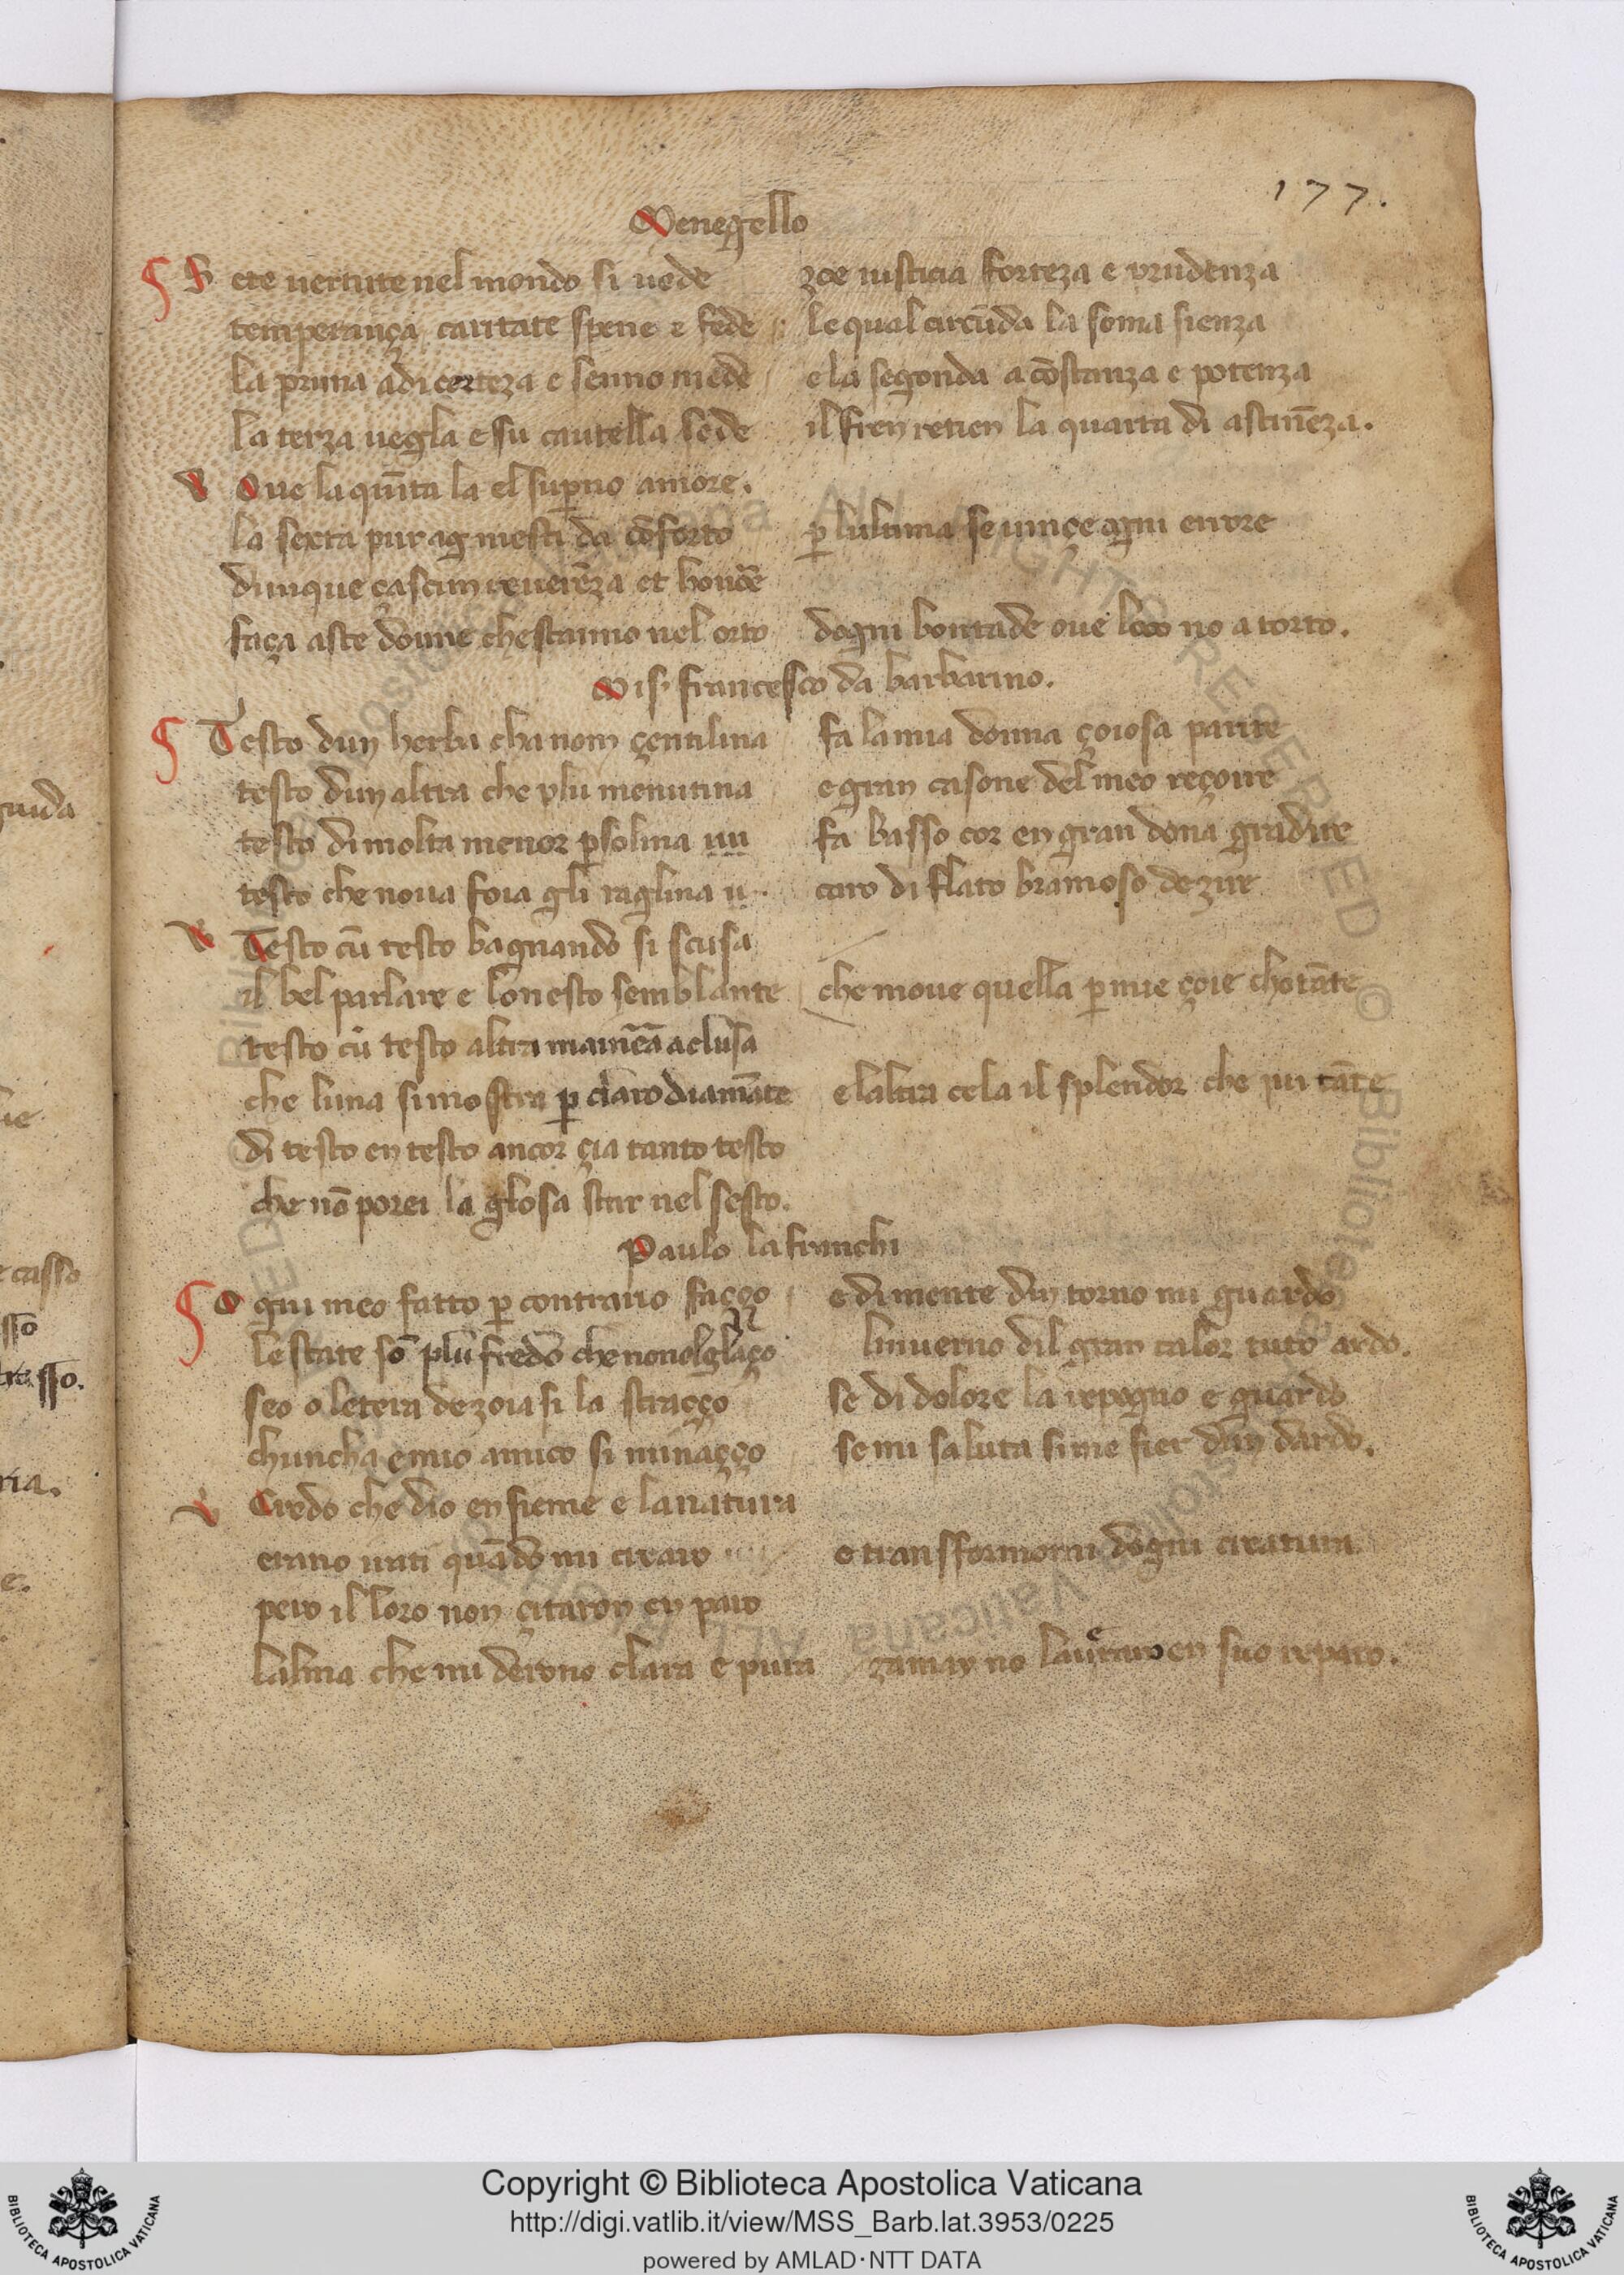 177.
Menegello
Sete uertute nel mondo si uede zoe iusticia forteza e prudenza
temperança caritate spene e fede le qual circūda la soma sienza
la prima adi certeza e senno mede e la segonda a cōstanza e potenza
la terza uegla e su cautella sede il fren retien la quarta di astinēza.
V Oue la quīta la el sup̄no amore.
la sexta pur ag mesti da cōforto p̱ lultima se uinçe ogni errore
dunque çascun reuerēza et honore
faça aste donne che stanno nel orto dogni bontade oue loco no a torto.
Mis. francesco da barbarino.
Testo dun herba cha nom çentilina fa la mia donna çoiosa parire
testo dun altra che plu menutina e gran casone del meo reçoire
testo di molta menor p̱solina un fa basso cor en gran dona gradire
testo che noua foia gli raglina u. caro di flato bramoso dezire
V Testo cū testo bagnando si scusa
il bel parlare e lonesto semblante che moue quella p̱ mie çoie chotāte
testo cū testo altra mainēa aclusa
che luna si mostra p̱ claro diamāte e laltra cela il splendor che pu tāte
di testo en testo ancor çia tanto testo
che nō porei la glosa star nel sesto.
Paulo lafranchi
Ogni meo fatto p̱ contrario façço e di mente din torno mi guardo
lestate sō plu fredo che non ol glaço linuerno dil gran calor tuto ardo.
seo o letera de zoia si la straçço se di dolore la repogno e guardo
chuncha e mio amico si minaçço se mi saluta si me fier dun dardo.
V Credo che dio ensieme e la natura
erano irati quādo mi criaro e transfformorni dogni creatura
pero il loro non çitaron en paro
lalma che mi derono clara e pura zamay no lauraro en suo reparo.
Copyright © Biblioteca Apostolica Vaticana
http://digi.vatlib.it/view/MSS_Barb.lat.3953/0225
powered by AMLAD·NTT DATA
BIBLIOTECA APOSTOLICA VATICANA
BIBLIOTECA APOSTOLICA VATICANA